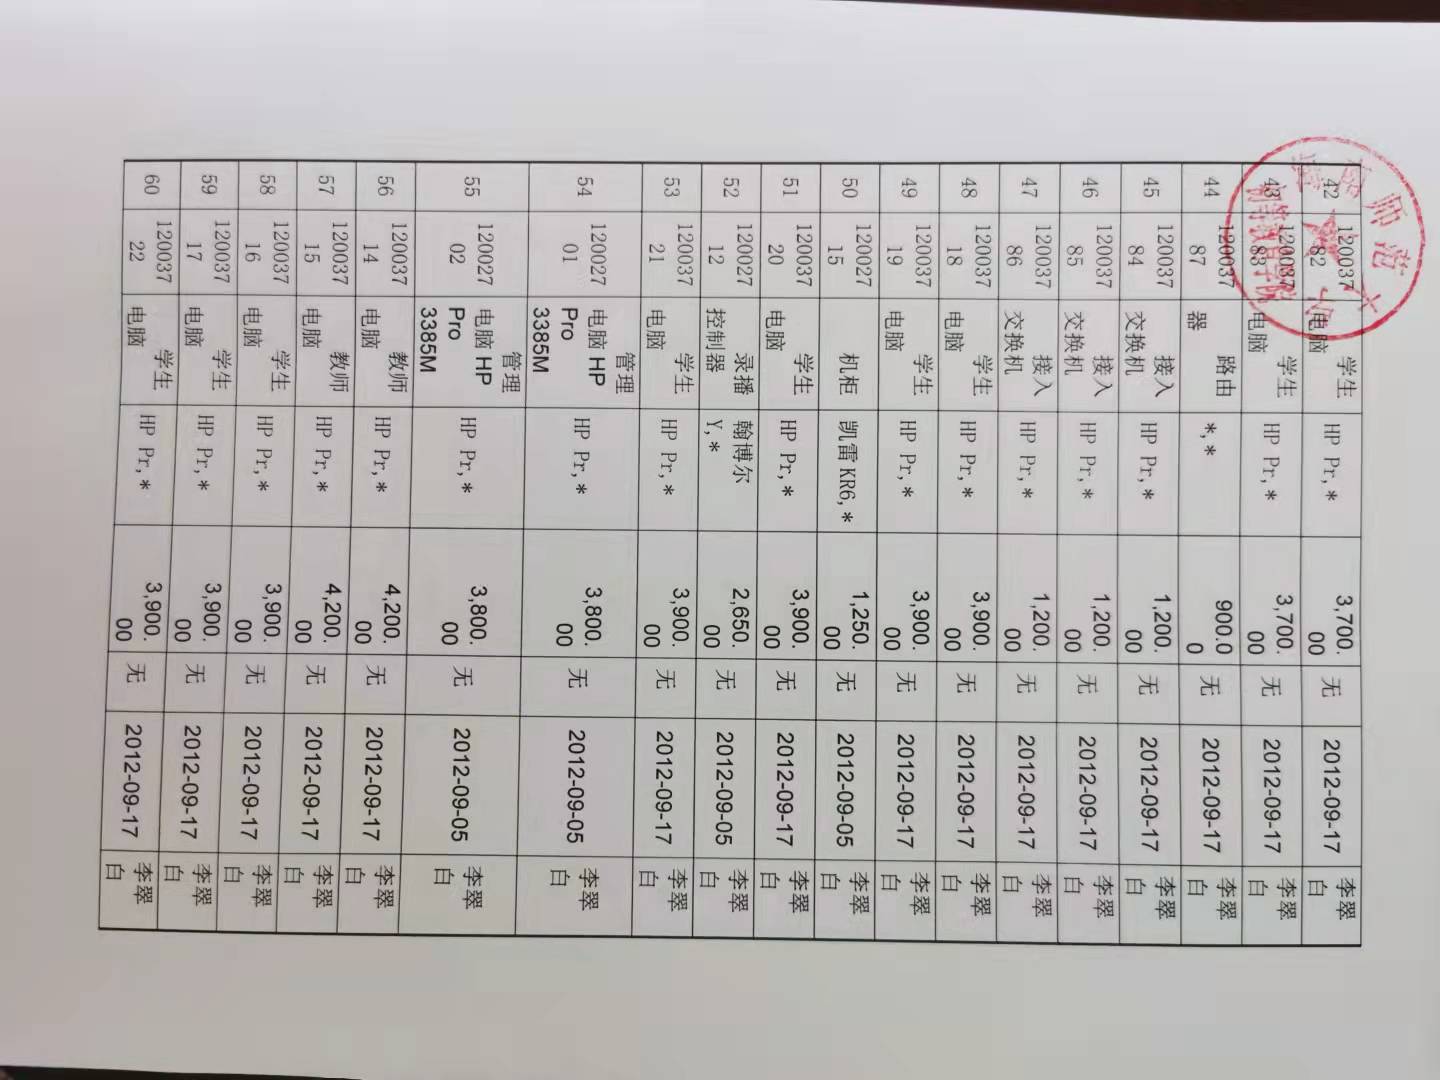 42 12003782 学生电脑 HP Pr,* 3,700.00 无 2012-09-17 李翠白
43 12003783 学生电脑 HP Pr,* 3,700.00 无 2012-09-17 李翠白
44 12003787 路由器 *,* 900.00 无 2012-09-17 李翠白
45 12003784 接入交换机 HP Pr,* 1,200.00 无 2012-09-17 李翠白
46 12003785 接入交换机 HP Pr,* 1,200.00 无 2012-09-17 李翠白
47 12003786 接入交换机 HP Pr,* 1,200.00 无 2012-09-17 李翠白
48 12003718 学生电脑 HP Pr,* 3,900.00 无 2012-09-17 李翠白
49 12003719 学生电脑 HP Pr,* 3,900.00 无 2012-09-17 李翠白
50 12002715 机柜 凯雷KR6,* 1,250.00 无 2012-09-05 李翠白
51 12003720 学生电脑 HP Pr,* 3,900.00 无 2012-09-17 李翠白
52 12002712 录播控制器 翰博尔Y,* 2,650.00 无 2012-09-05 李翠白
53 12003721 学生电脑 HP Pr,* 3,900.00 无 2012-09-17 李翠白
54 12002701 管理电脑 HP Pro 3385M HP Pr,* 3,800.00 无 2012-09-05 李翠白
55 12002702 管理电脑 HP Pro 3385M HP Pr,* 3,800.00 无 2012-09-05 李翠白
56 12003714 教师电脑 HP Pr,* 4,200.00 无 2012-09-17 李翠白
57 12003715 教师电脑 HP Pr,* 4,200.00 无 2012-09-17 李翠白
58 12003716 学生电脑 HP Pr,* 3,900.00 无 2012-09-17 李翠白
59 12003717 学生电脑 HP Pr,* 3,900.00 无 2012-09-17 李翠白
60 12003722 学生电脑 HP Pr,* 3,900.00 无 2012-09-17 李翠白
师范大
初等教育学院